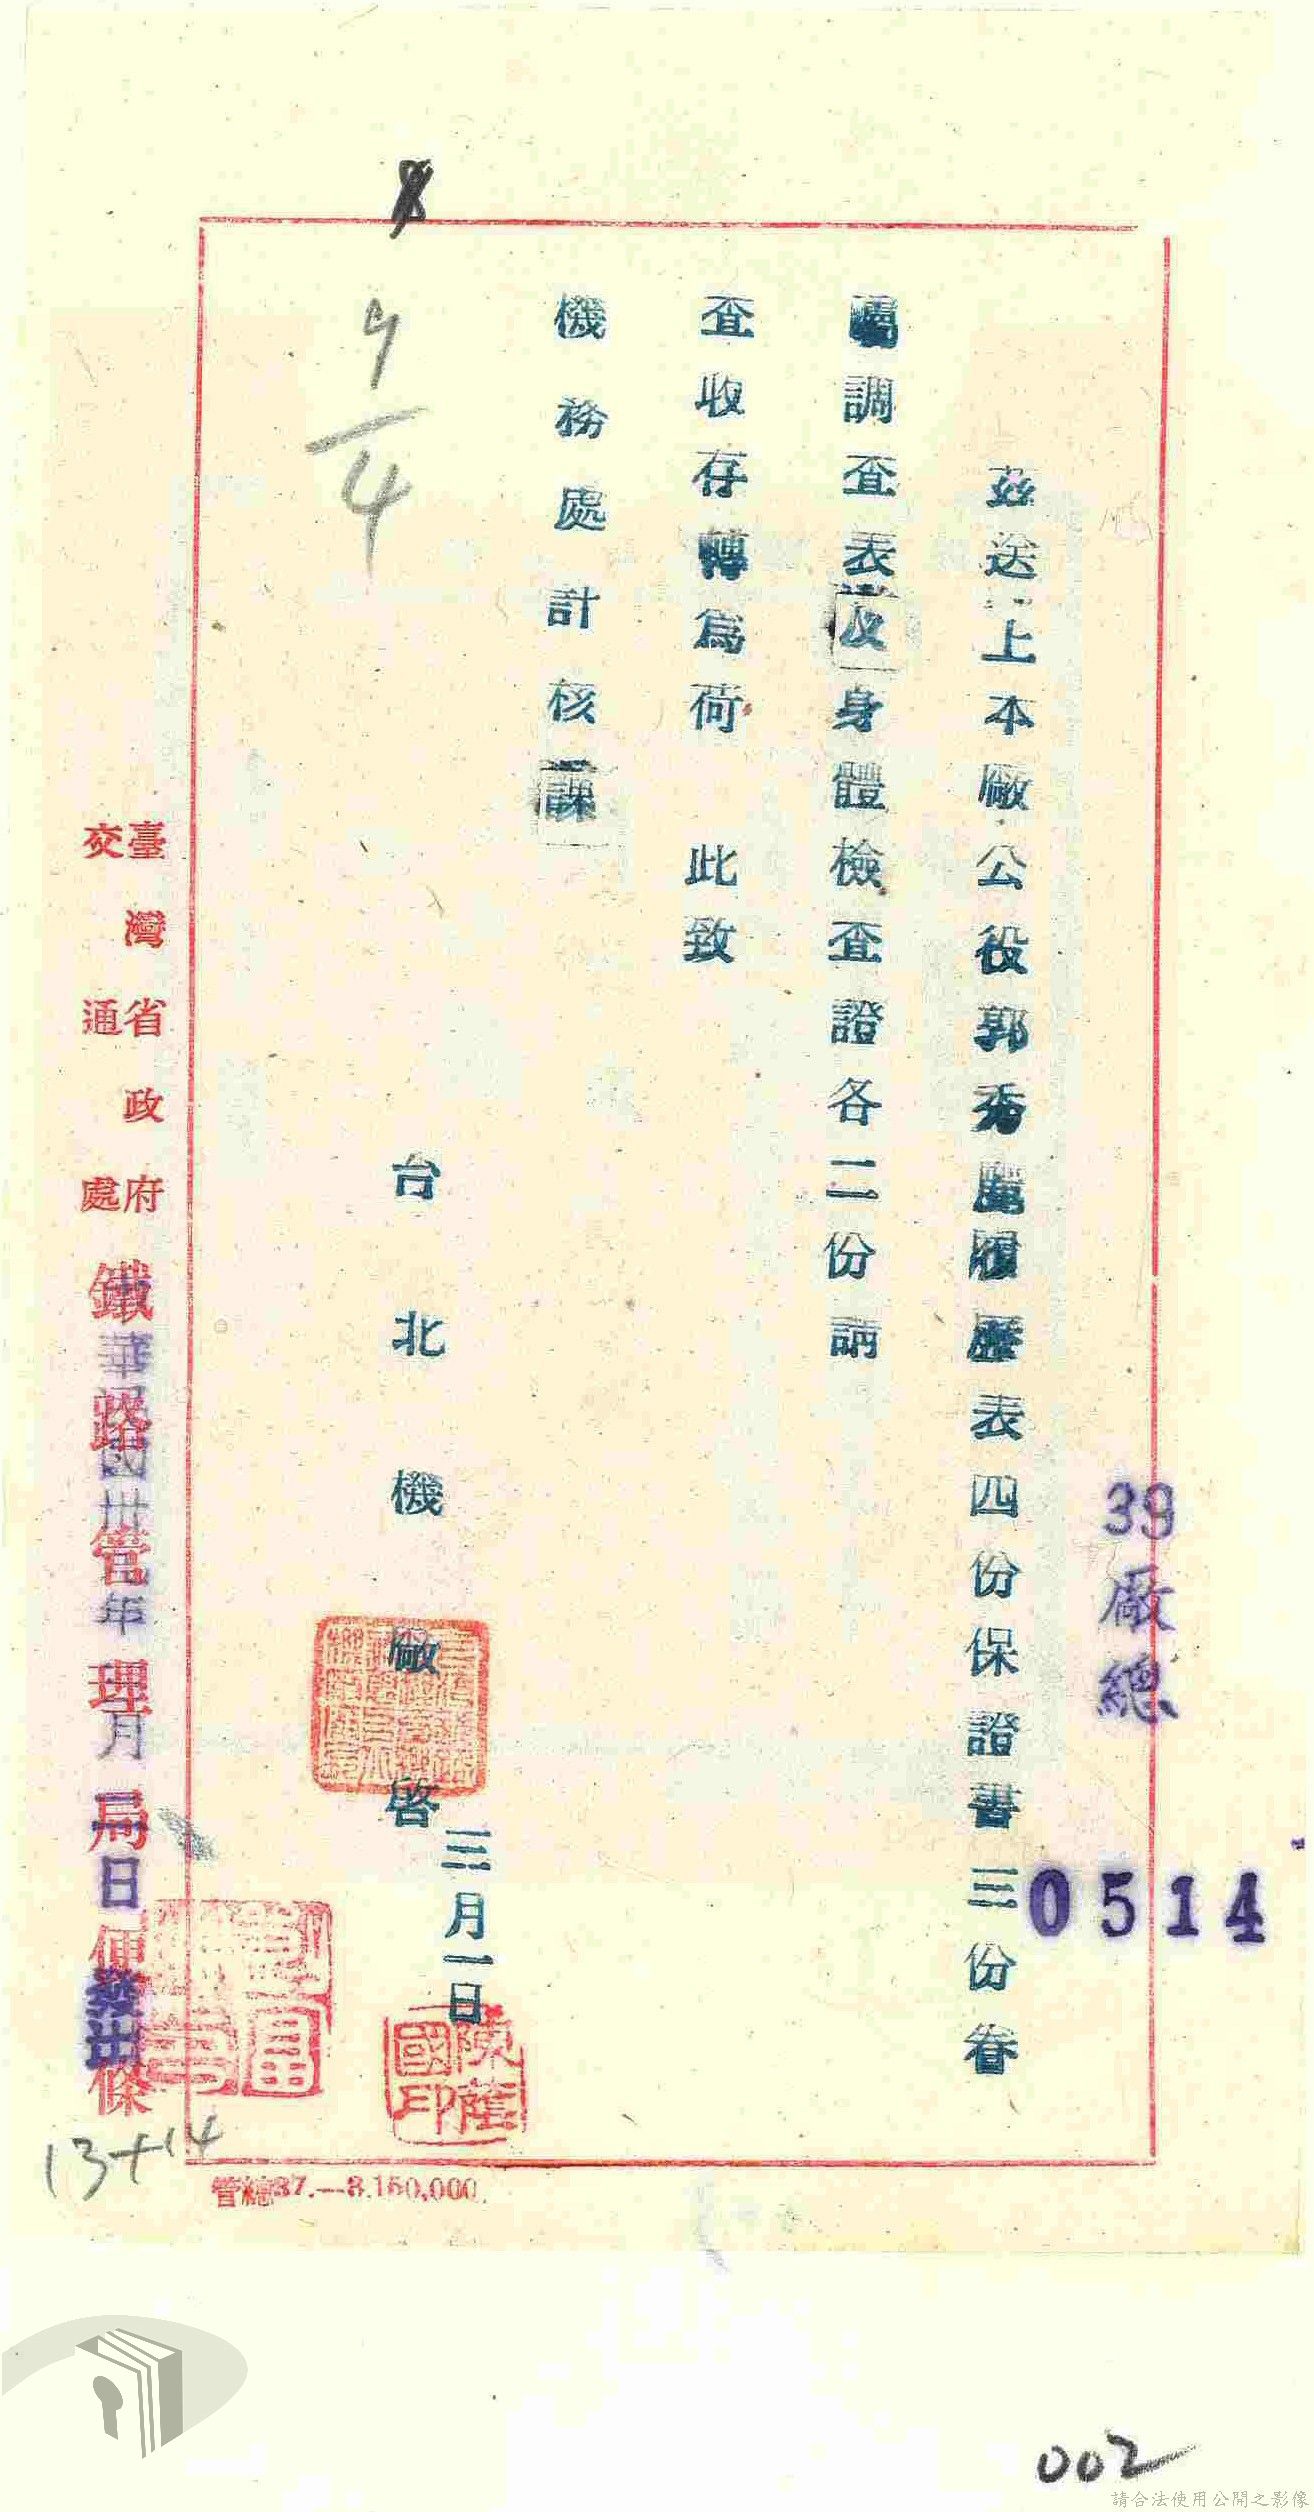 39廠總
0514
茲送上本廠公役郭秀鳳履歷表四份保證書三份眷
屬調查表及身體檢查證各二份請
查收存轉為荷 此致
機務處計核課
三月一日
台北機廠啓
陳蔭國印
9/4
臺灣省政府交通處
鐵路管理局便條
華民國卅年月日發出
管總37.—3.150,000.
13+14
002
請合法使用公開之影像